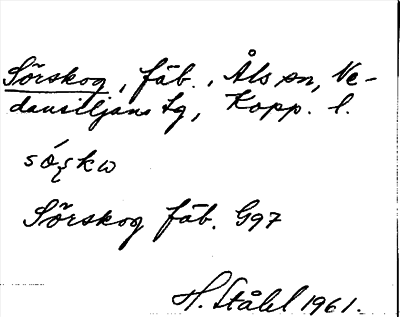 Sörskog, fäb., Åls sn, Ne-
dansiljans tg, Kopp. l.
Sörskog fäb. G97
H. Ståhl 1961.